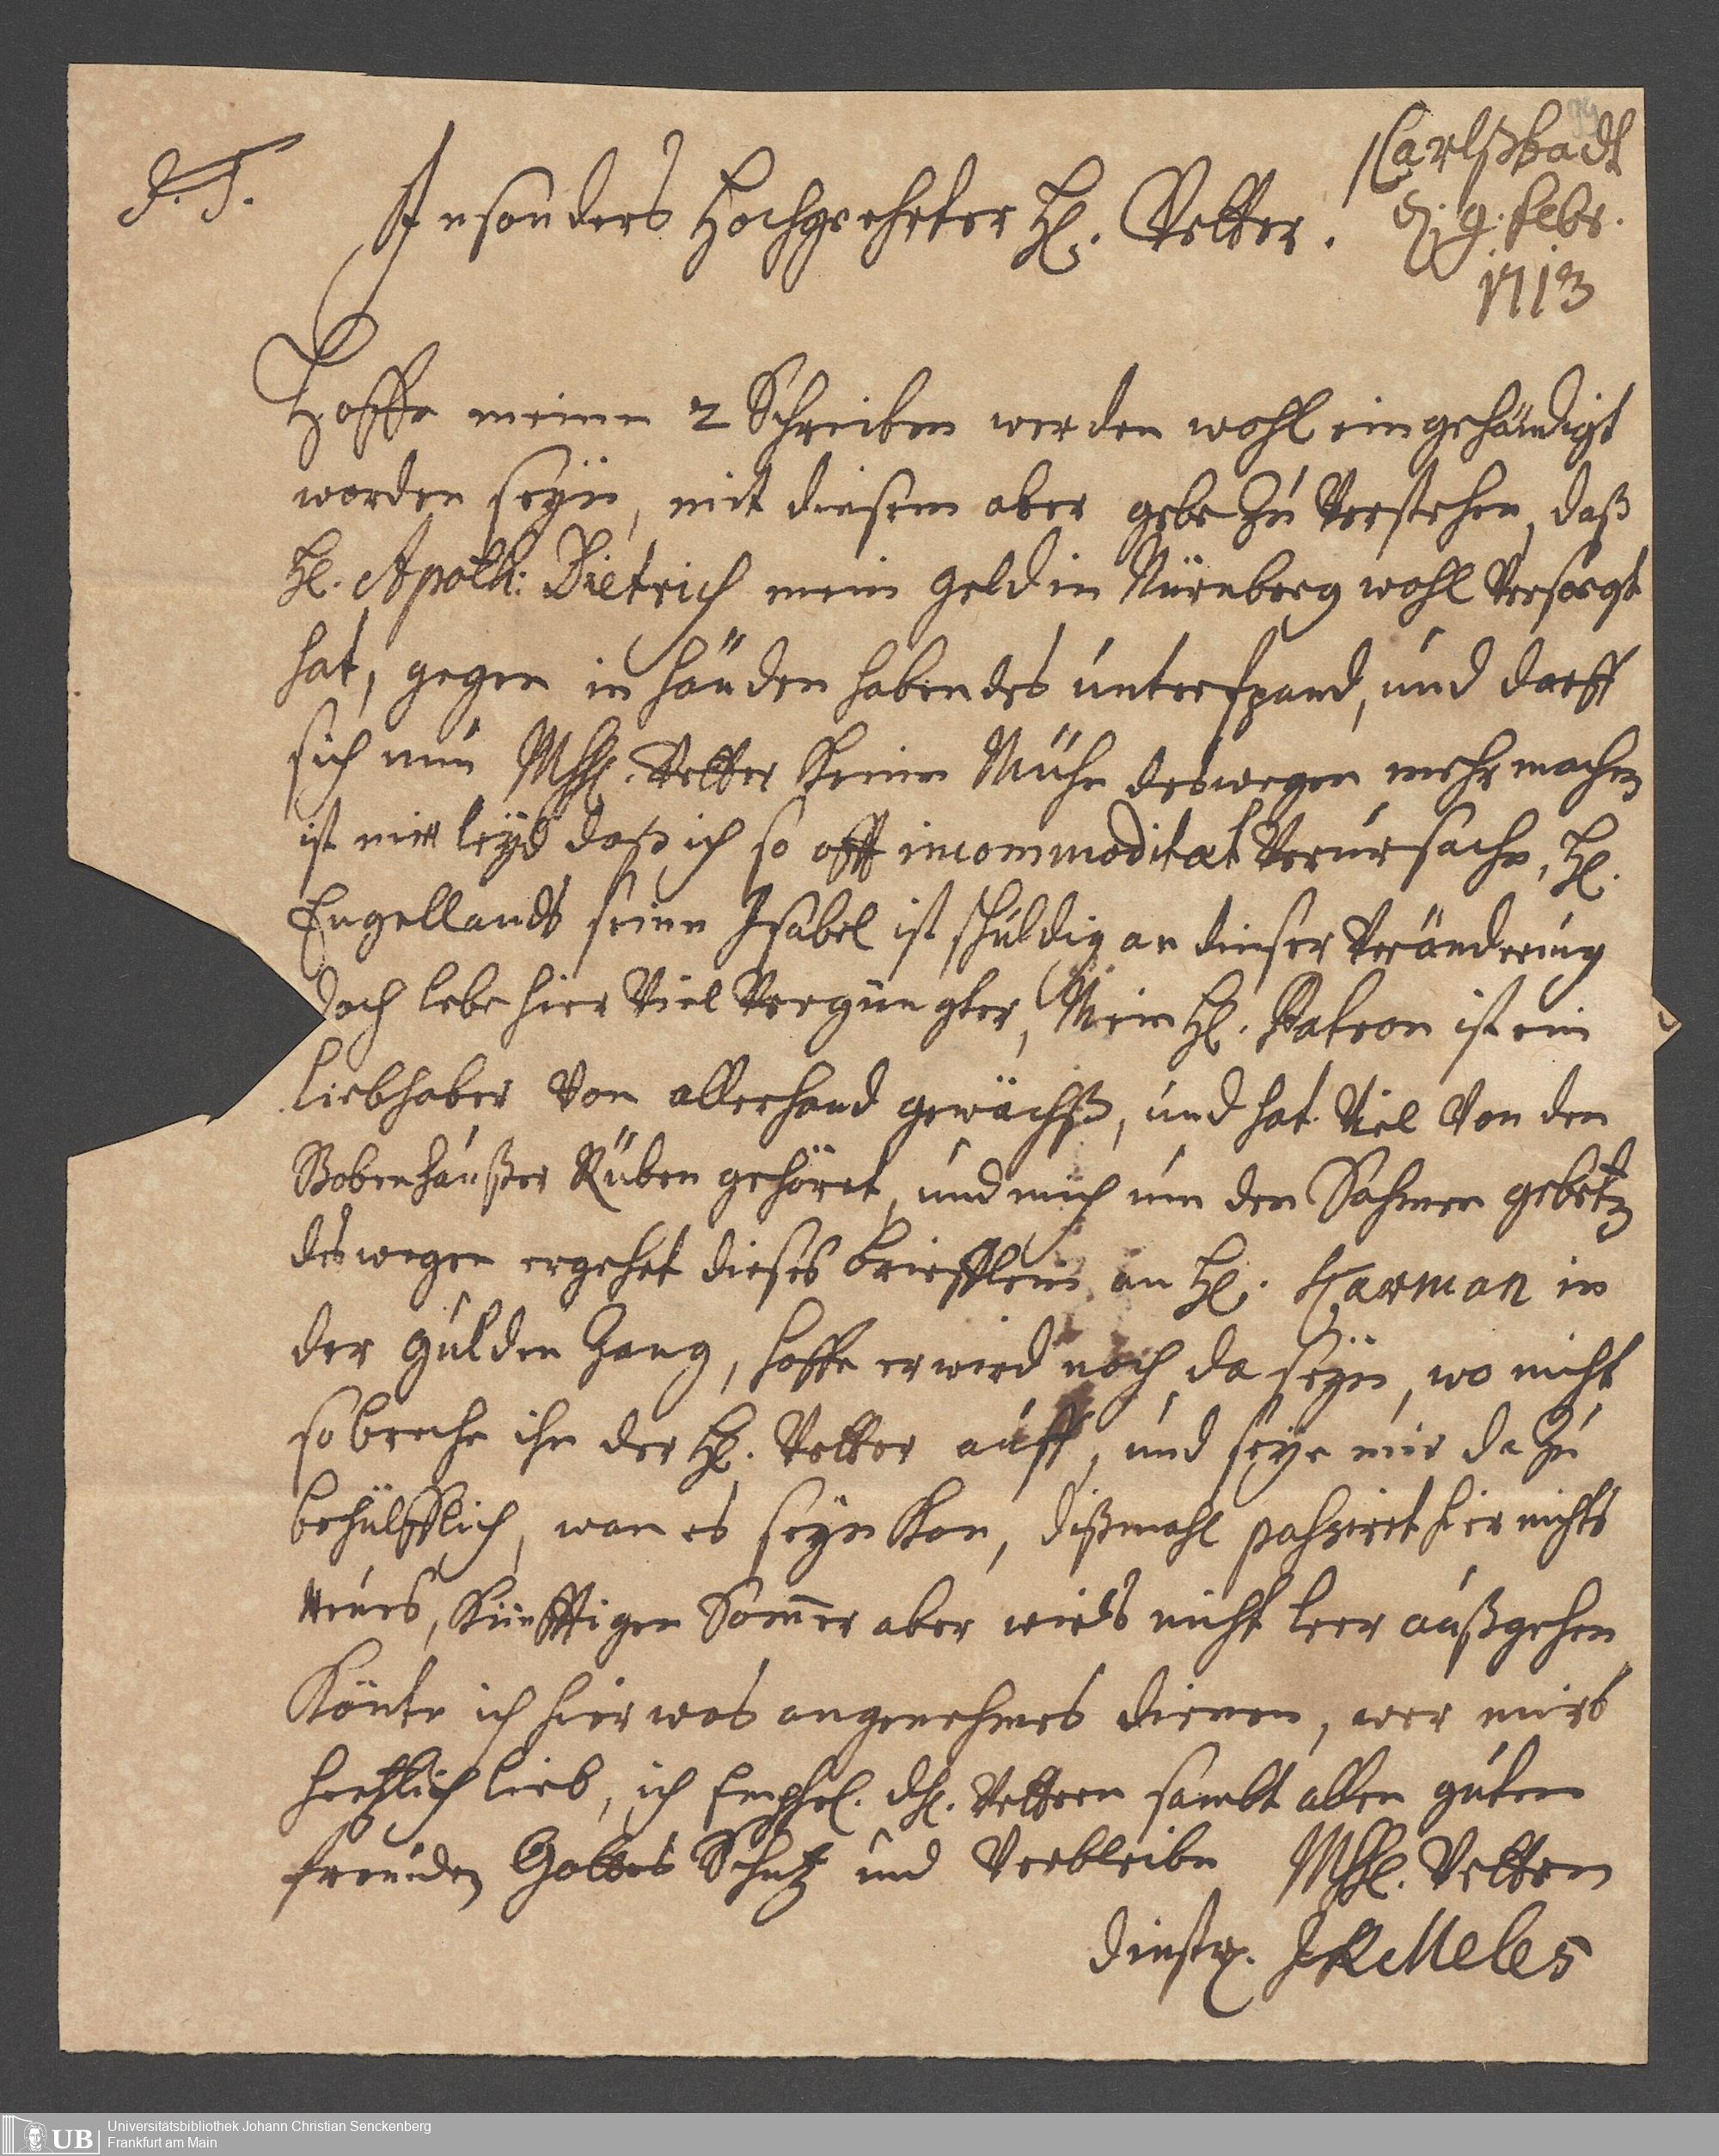 Carlßbadt
d. 9. Febr.
1713
P. T.
Insonders Hochgeehrter H. Vetter.
Hoffe meine 2 Schreiben werden wohl eingehändigt
worden seyn, mit diesem aber gebe zu Verstehen, daß
H. Apoth: Dietrich mein geld in Nürnberg wohl Versorgt
hat, gegen in händen habendes unterpfand, und darff
sich nun MhH. Vetter Keine Mühe deswegen mehr machen
ist mir leyd daß ich so offt incommoditat Verursache, H.
Engellandt seine Isabel ist schuldig an dieser Veränderung
doch lebe hier Viel Vergnügter, Mein H. Patron ist ein
liebhaber Von allerhand gewächß, und hat Viel Von den
Bobenhäußer Rüben gehöret, und mich um den Sahmen gebetten
deswegen ergehet dieses briefflein an H. Harman in
der gulden Zang, hoffe er wird noch da seyn, wo nicht
so breche ihn der H. Vetter auff, und seye mir da Zu
behülfflich, wan es seyn Kan, dißmahl paßiret hier nichts
neues, Künfftigen Som̄er aber wirds nicht leer außgehen
Könte ich hier was angenehmes dienen, wer mirs
hertzlich lieb, ich Empfel. dH. Vettern sambt allen guten
freunden Gottes Schutz und Verbleibe MhH. Vettern
dinstw. JRMeles
UB
Universitätsbibliothek Johann Christian Senckenberg
Frankfurt am Main